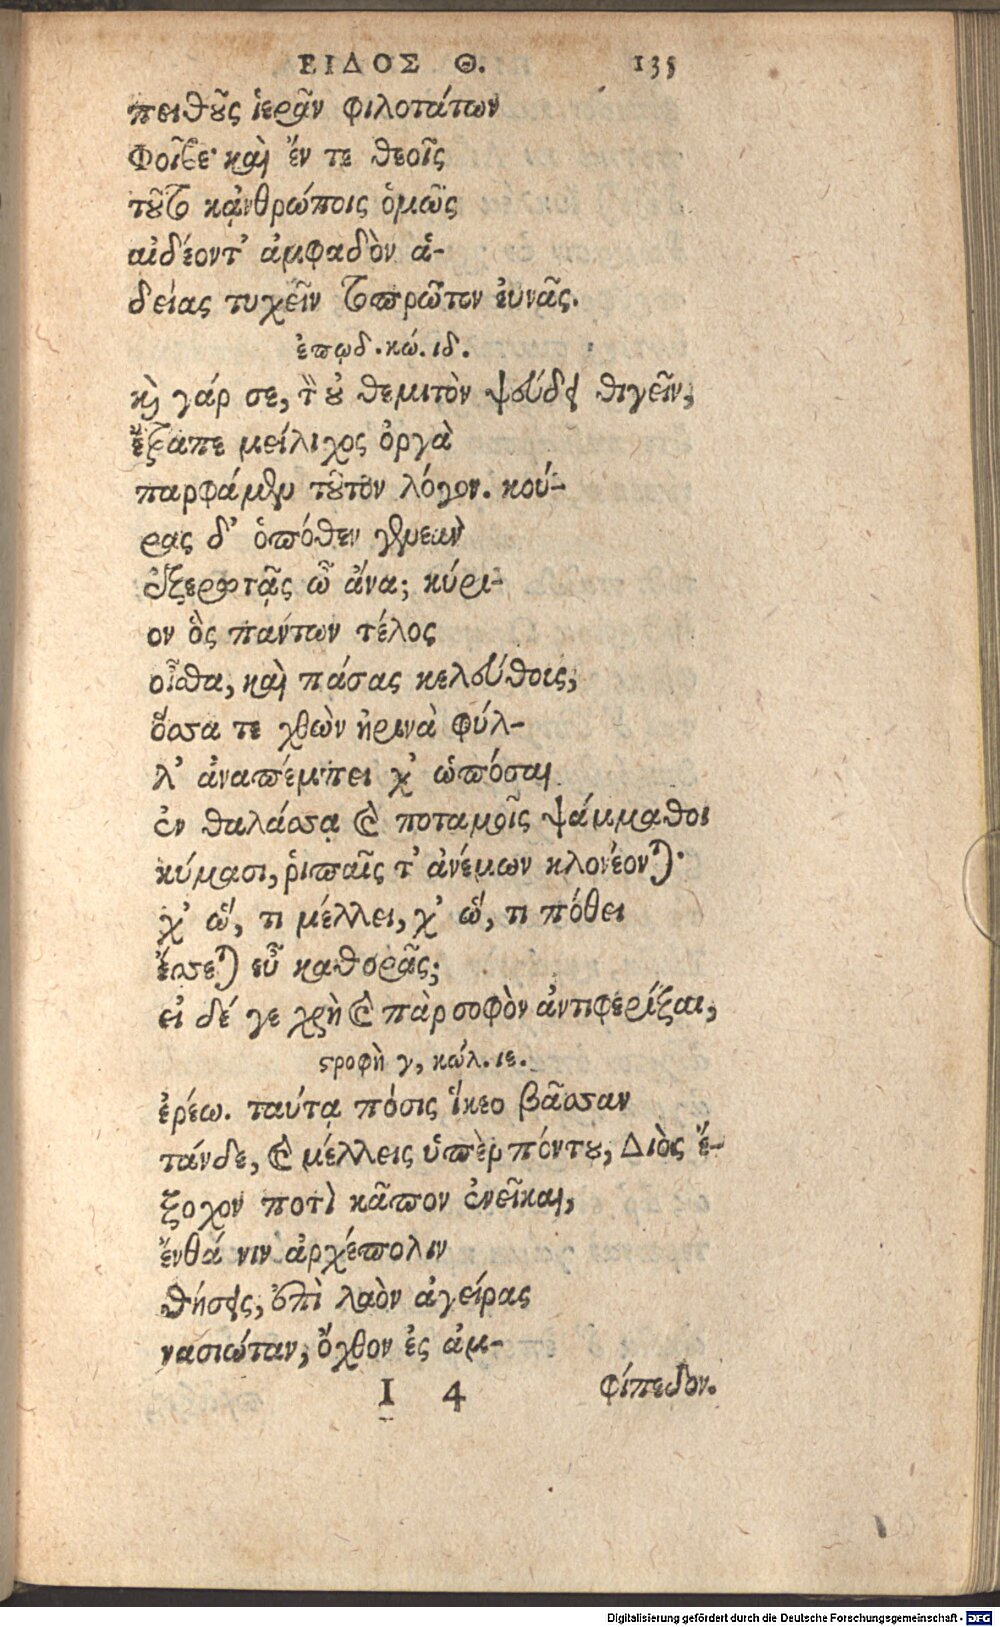 ΕΙΔΟΣ Θ. 135
πειθοῦς ἱερᾶν φιλοτάτων
Φοῖβε· καὶ ἔν τε θεοῖς
τοῦτο κᾀνθρώποις ὁμῶς
αἰδέοντ' ἀμφαδὸν ἁ-
δείας τυχεῖν τοπρῶτον εὐνᾶς.
ἐπῳδ. κώ. ιδ.
καὶ γάρ σε, τὸν οὐ θεμιτὸν ψεύδει θιγεῖν,
ἔτραπε μείλιχος ὀργὰ
παρφάμεν τοῦτον λόγον. κού-
ρας δ' ὁπόθεν γενεὰν
ἐξερωτᾷς ὦ ἄνα; κύρι-
ον ὃς πάντων τέλος
οἶσθα, καὶ πάσας κελεύθοις,
ὅσσα τε χθὼν ἠρινὰ φύλ-
λ' ἀναπέμπει χ' ὡπόσαι
ἐν θαλάσσᾳ καὶ ποταμοῖς ψάμμαθοι
κύμασι, ῥιπαῖς τ' ἀνέμων κλονέονται·
χ' ὥ, τι μέλλει, χ' ὥ, τι πόθει
ἔσσεται εὖ καθορᾷς;
εἰ δέ γε χρὴ καὶ πὰρ σοφὸν ἀντιφερίξαι,
στροφὴ γ, κώλ. ιε.
ἐρέω. ταύτᾳ πόσις ἵκεο βᾶσσαν
τάνδε, καὶ μέλλεις ὑπὲρ πόντου, Διὸς ἔ-
ξοχον ποτὶ κᾶπον ἐνεῖκαι,
ἔνθά νιν ἀρχέπολιν
θήσεις, ἐπὶ λαὸν ἀγείρας
νασιώταν, ὄχθον ἐς ἀμ-
I 4 φίπεδον.
Digitalisierung gefördert durch die Deutsche Forschungsgemeinschaft - DFG